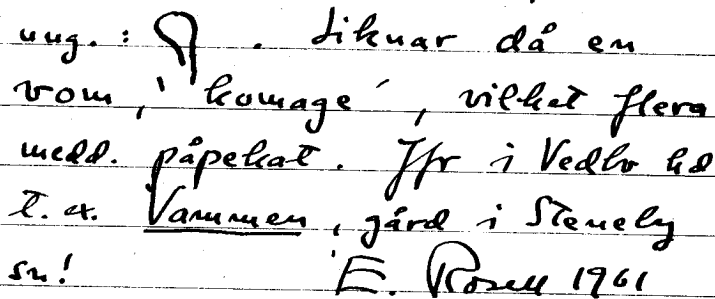 ung. : . Liknar då en
vom, 'komage', vilket flera
medd. påpekat. Jfr i Vedbo hd
t.ex. Vammen, gård i Steneby
sn! E. Rosell 1961